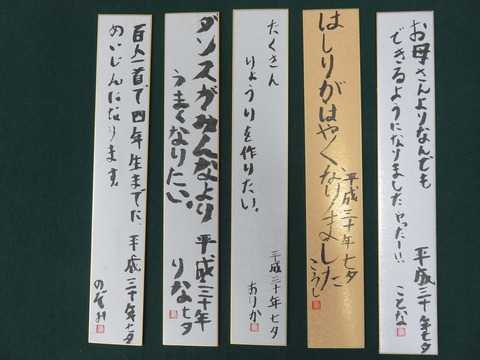 お母さんよりなんでも
できるようになりましたやったー!!
平成三十年七夕
ことな
はしりがはやくなりました
平成三十年七夕
こうし
たくさん
りょうりを作りたい。
平成三十年七夕
おりか
ダンスがみんなより
うまくなりたい。
平成三十年
七夕
りな
百人一首で四年生までに、
めいじんになります。
平成三十年七夕